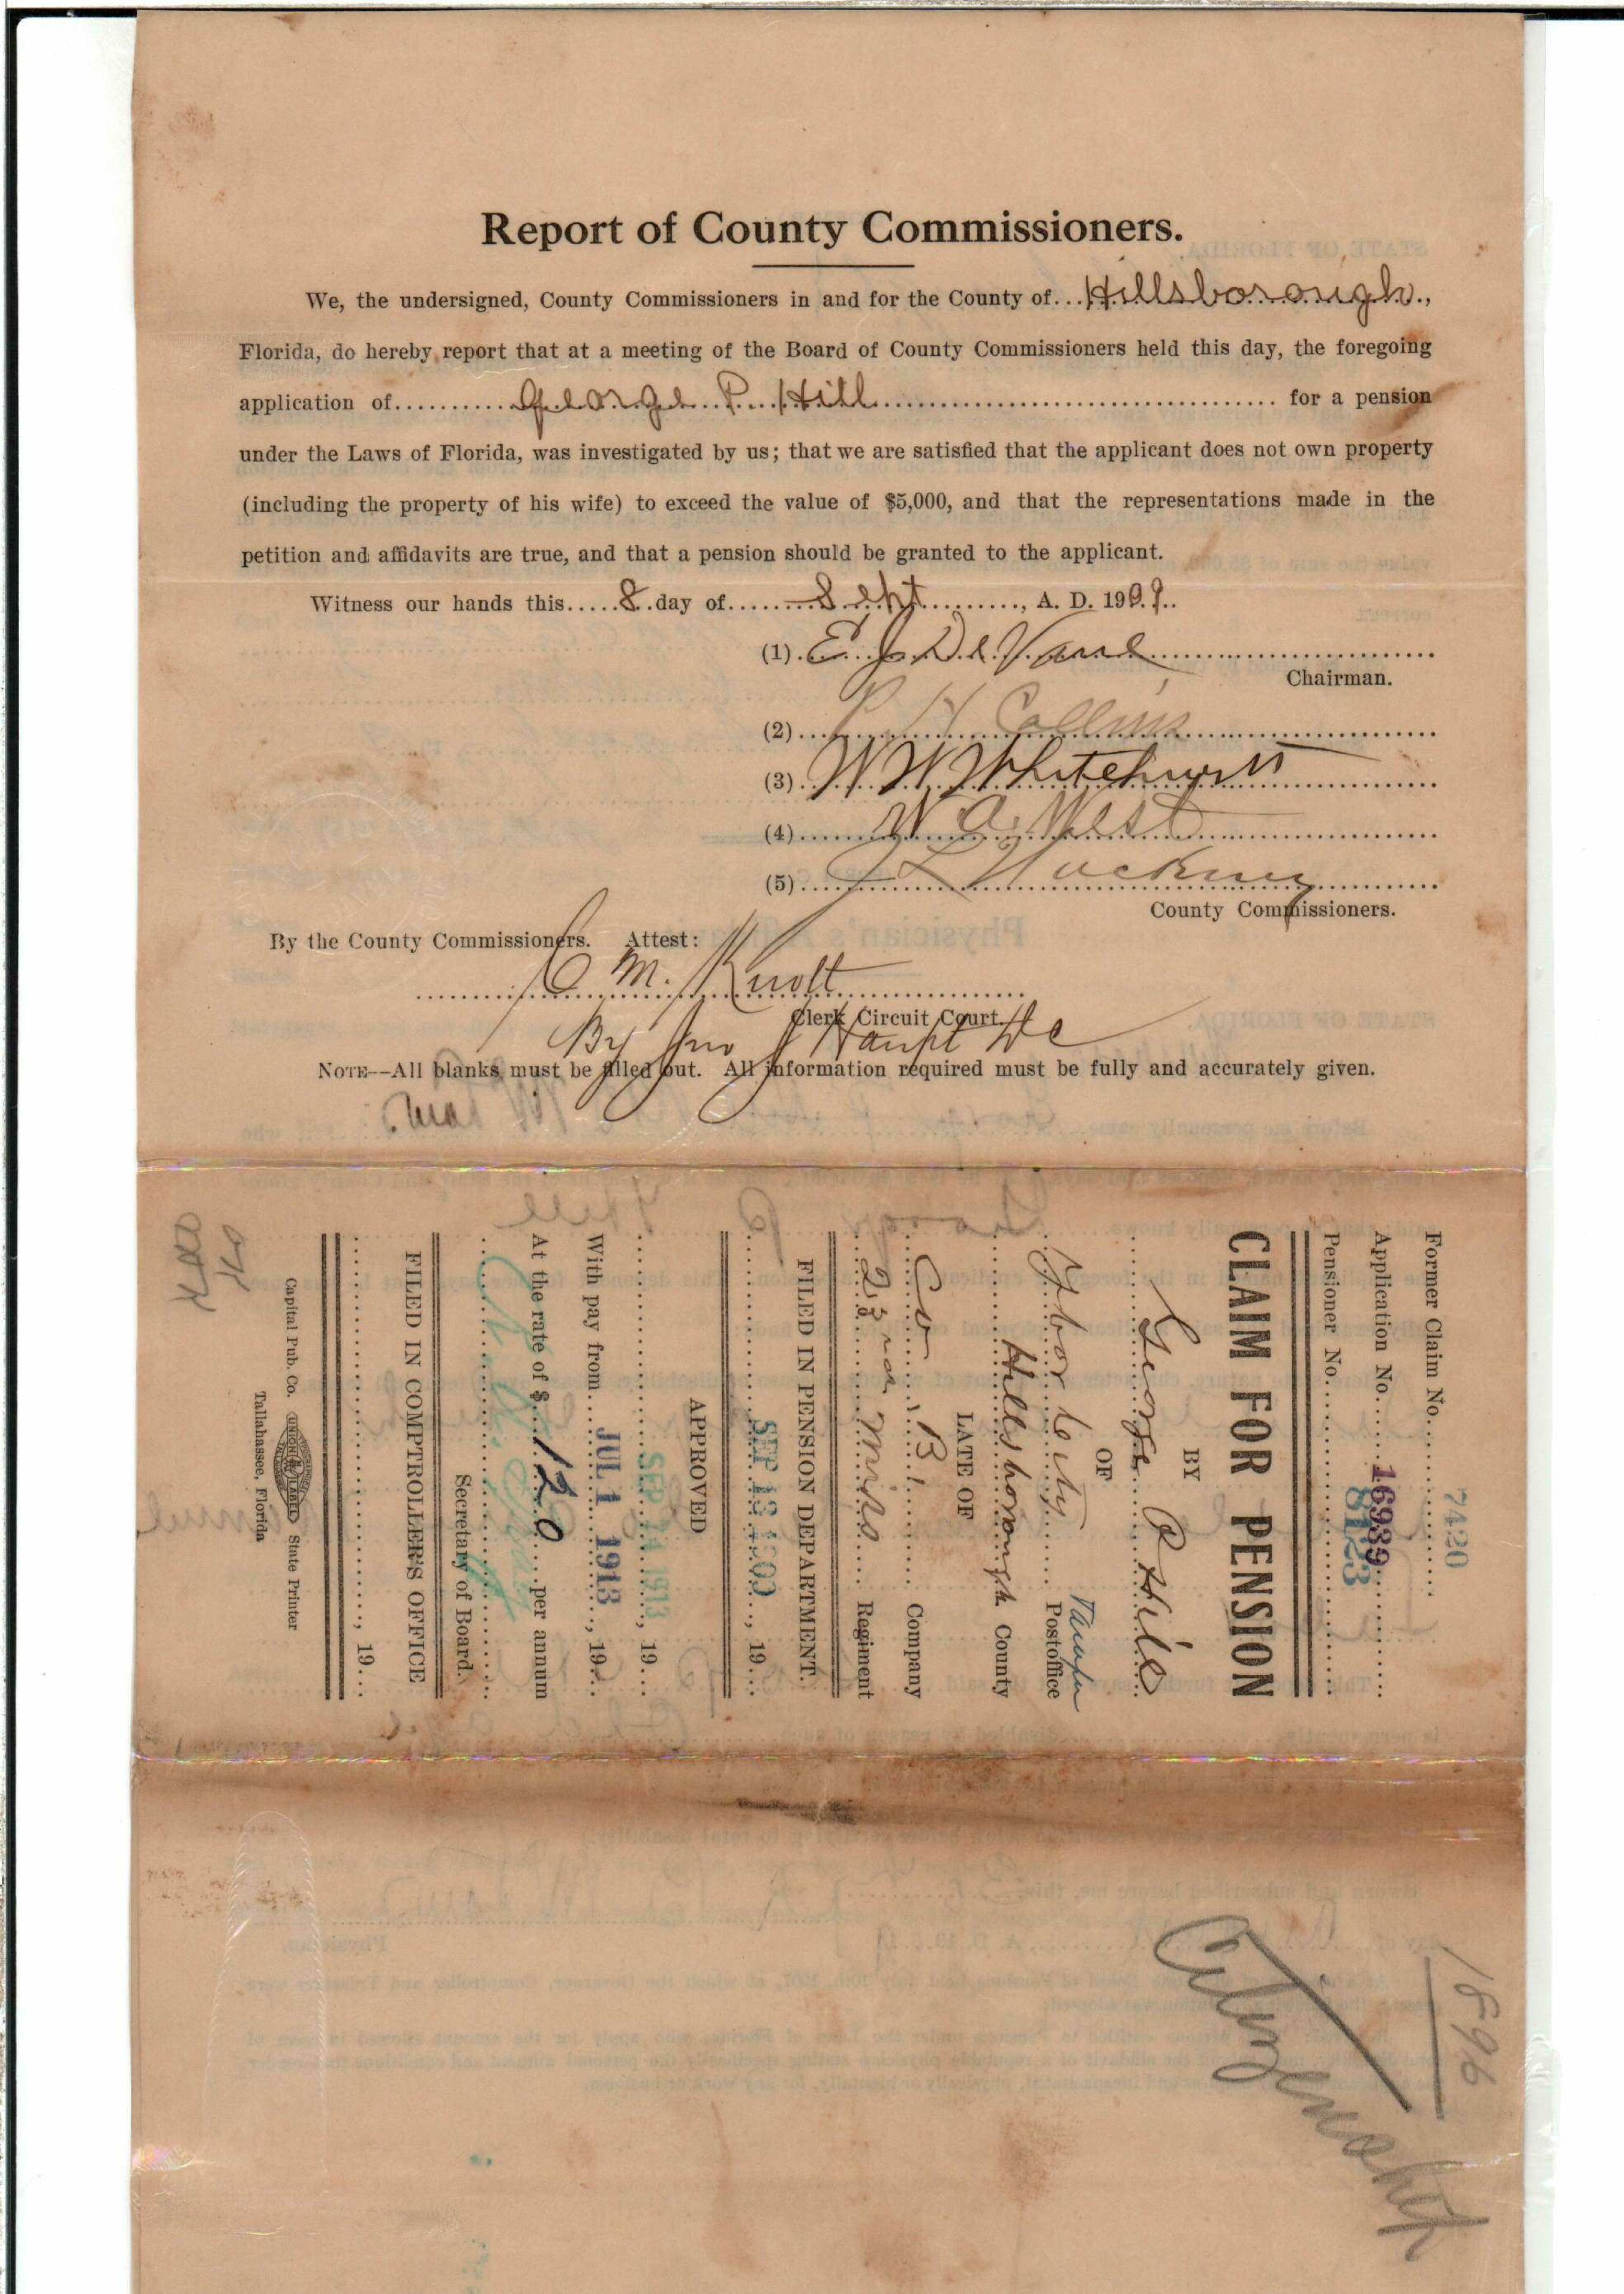 Report of County Commissioners.
We, the undersigned, County Commissioners in and for the County of...Hillsborough.,
Florida, do hereby report that at a meeting of the Board of County Commissioners held this day, the foregoing
application of..........George P. Hill.......... for a pension
under the Laws of Florida, was investigated by us; that we are satisfied that the applicant does not own property
(including the property of his wife) to exceed the value of $5,000, and that the representations made in the
petition and affidavits are true, and that a pension should be granted to the applicant.
Witness our hands this.....8..day of........Sept.........., A. D. 1909..
(1) E J DeVane
Chairman.
(2) H Collins
(3) W W Whitehurst
(4) W A West
(5)
County Commissioners.
By the County Commissioners. Attest:
C M. Knott
Clerk Circuit Court.
By Jno J Haupt DC
NOTE--All blanks must be filled out. All information required must be fully and accurately given.
Former Claim No. 7420
Application No. 16939
Pensioner No. 8123
CLAIM FOR PENSION
BY
George P Hill
OF
Ybor City Tampa Postoffice
Hillsborough County
LATE OF
Co. B. Company
23 Miss Regiment
FILED IN PENSION DEPARTMENT.
SEP 13 1909, 19...
APPROVED
SEP 1913, 19...
With pay from JUL 1 1913, 19...
At the rate of $ 120 per annum
Secretary of Board.
FILED IN COMPTROLLER'S OFFICE
, 19...
Capital Pub. Co. UNION LABEL State Printer
Tallahassee, Florida
OK
1896
Citizenship